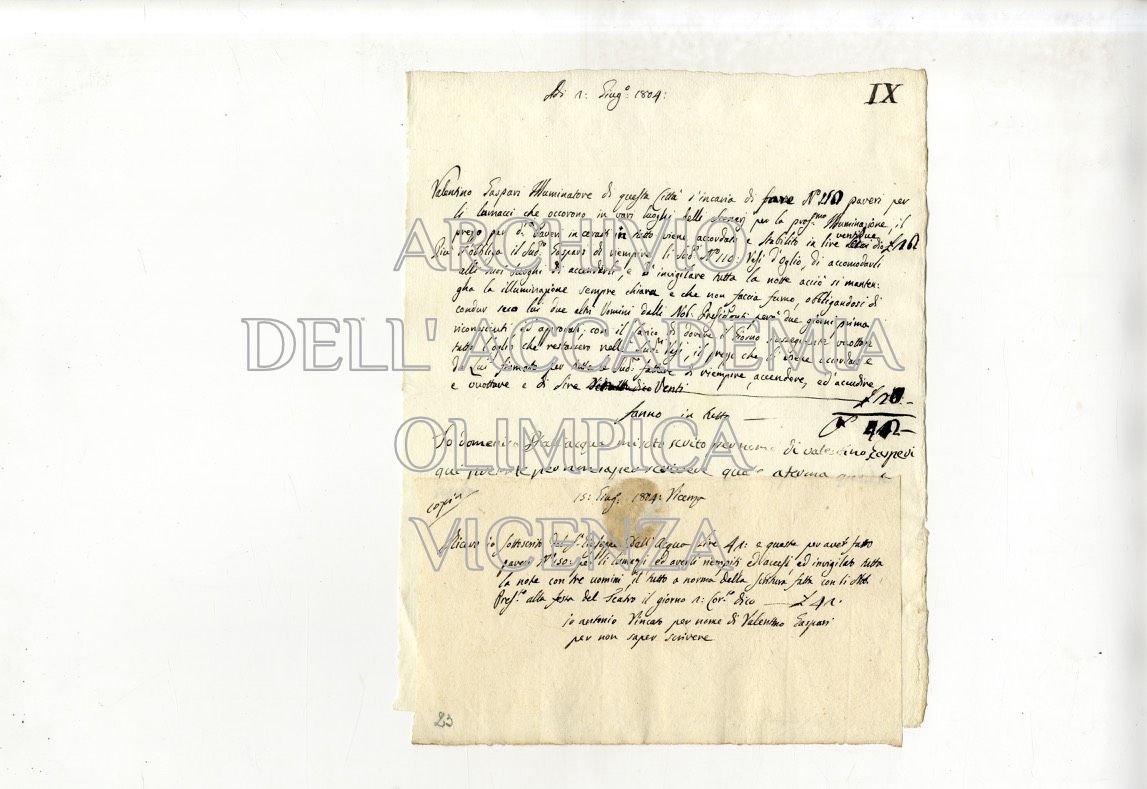 Adi 1: Giug.o 1804:
IX
Valentino Gaspari Illuminatore di questa Città s'incaria di fare N.o paveri per
li lumacci che occorono in vari luoghi delle Scene, per la pros.ma Illuminazione, il
prezzo per d.i Paveri incerati in tutto viene accordato e stabilito in lire ventidue dico £
Più s'obbliga il sud.o Gaspari di riempire li sud.i N.o Vasi d'Oglio, di accomodarli
alli suoi luoghi di accenderli, e d'invigilare tutta la notte acciò si manten-
gha la illuminazione sempre chiara e che non faccia fumo, obbligandosi di
condur seco lui due altri Uomini dalli Nob: Presidenti però due giorni prima
riconosciuti ed aprovati, con il carico di dovere il giorno susseguente vuottare
tutto l'oglio che resteranno nelli sud.i vasi, il prezzo che li viene accordato e
da Lui fermato per tutte le sud.e fatture di riempire, accendere, ed accudire
e vuottare e di Lire dico Venti
£ 20.-
fanno in tutto
£ 42-
Io domenico Dall'acqua pregato scrito per nome di valentino Gasperi
qual presente per non saper scrivere
copia
15: Giug.o 1804: Vicenza
Ricevo io sottoscrito dal S.r Giuseppe dall'Acqua Lire 41: e queste per aver fatto
paveri N.o 150: per li lumagli, ed averli riempiti ed accesi, ed invigilato tutta
la note con tre uomini, il tutto a norma della scritura fatta con li Nob:
Presid.ti alla festa del Teatro il giorno 1: Cor.te dico £ 41:
io antonio Vincato per nome di Valentino Gaspari
per non saper scrivere
23
ARCHIVIO
DELL'ACCADEMIA
OLIMPICA
VICENZA